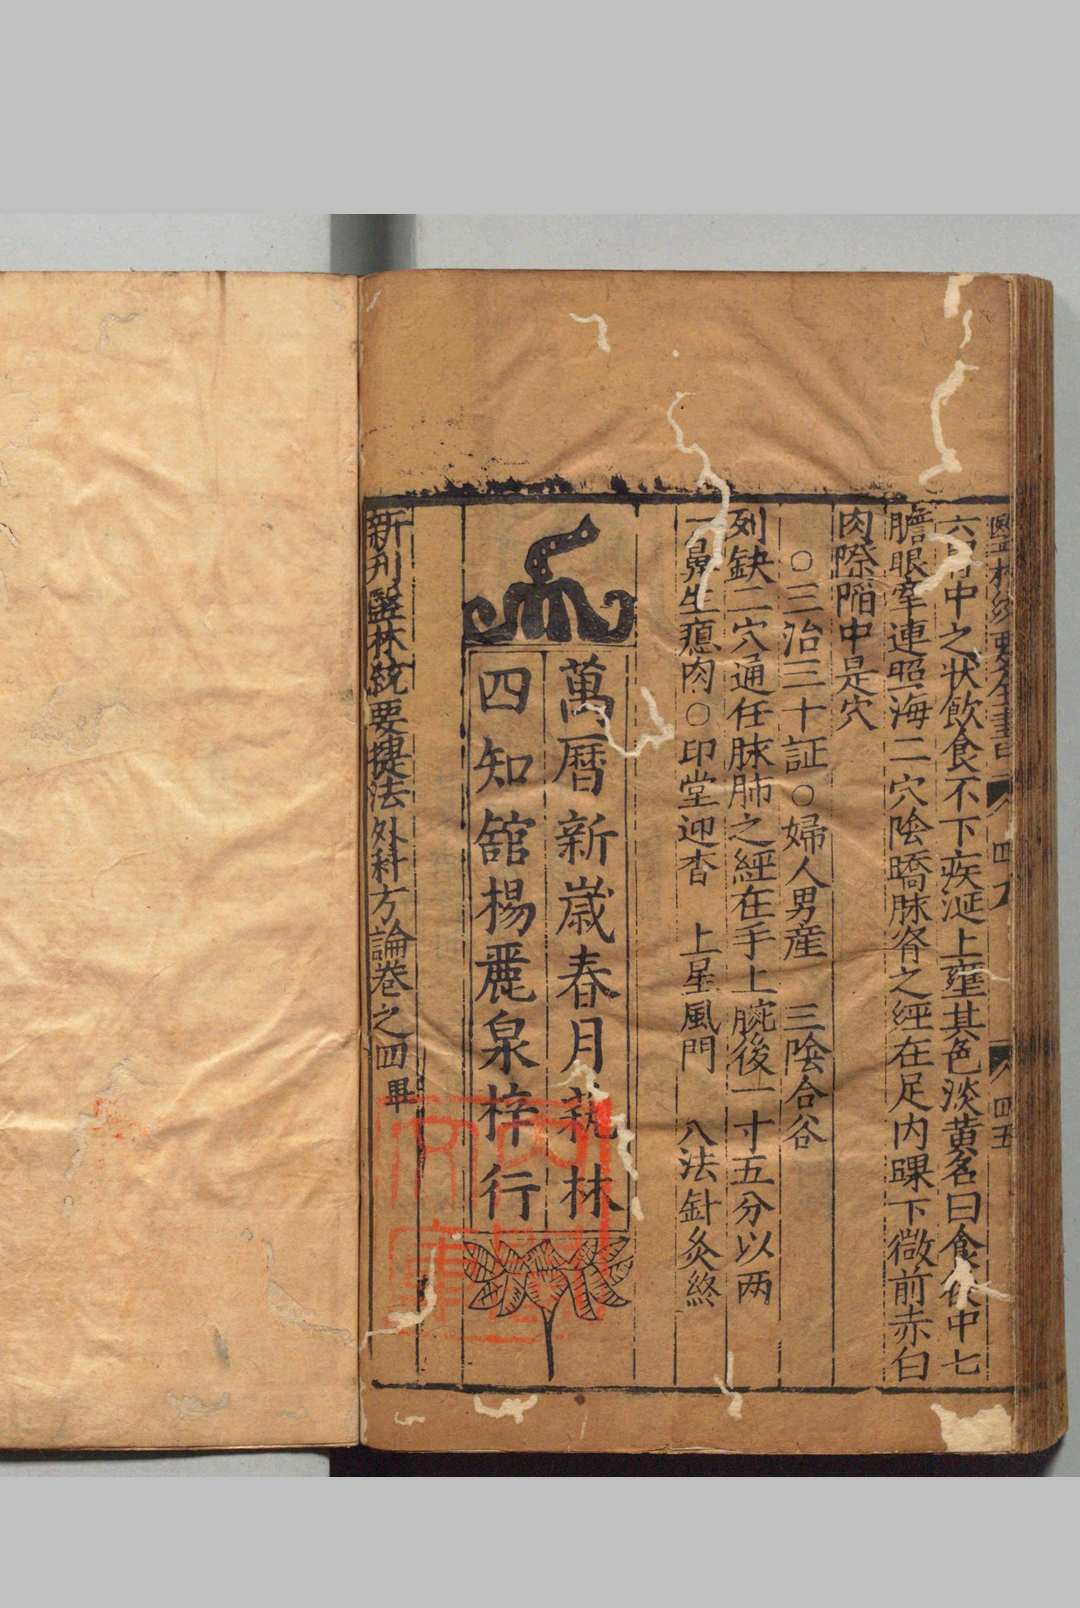 六胃中之状飲食不下疾涎上壅其色淡黄名曰食伏中七
膽眼牽連照海二穴陰蹻脉肾之經在足内踝下微前赤白
肉際陷中是穴
○三治三十証○婦人男産　三陰合谷
列缺二穴通任脉肺之經在手上腕後一寸五分以两
鼻生瘜肉○印堂迎杳　上星風門　八法針灸終
萬曆新歲春月 林
四知舘楊麗泉梓行
新刊醫林統要揵法外科方論卷之四畢